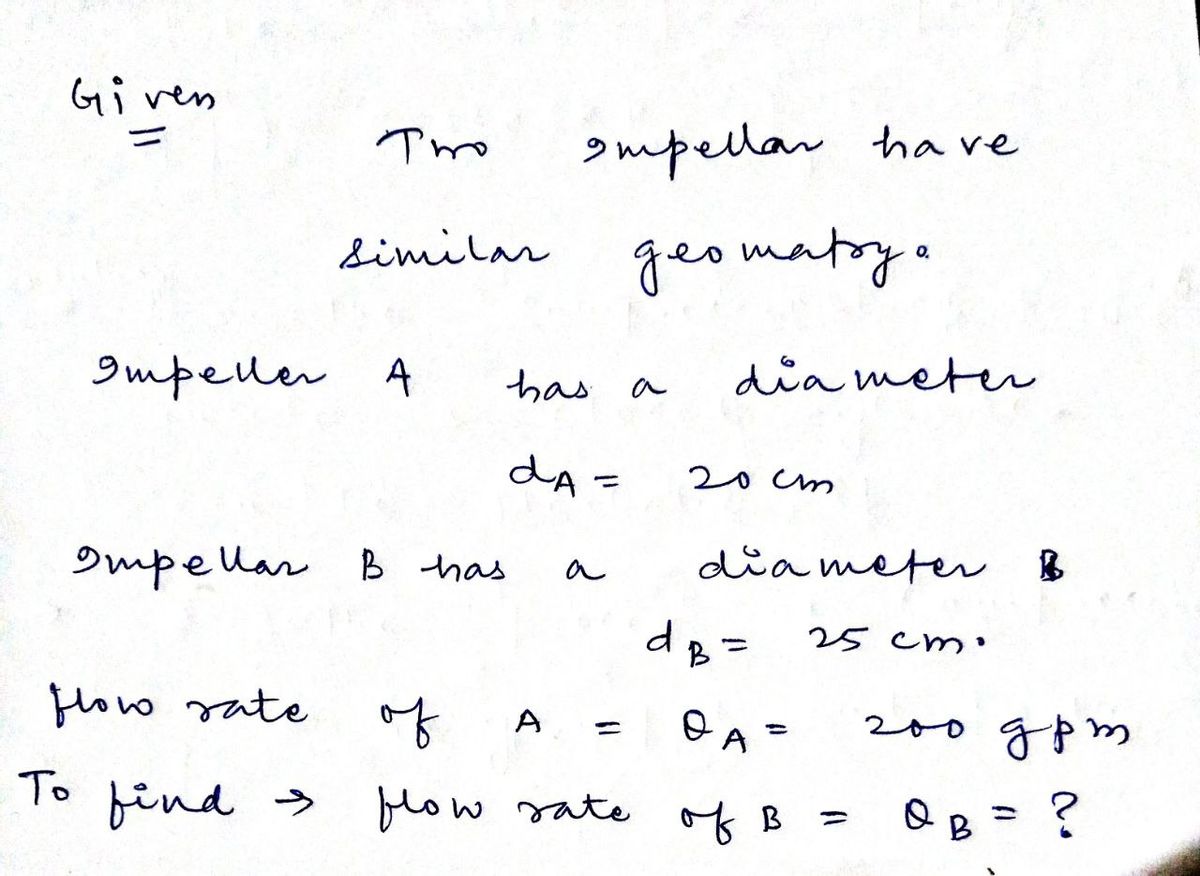 Given
Two impellar have
similar geomatry.
Impeller A has a diameter
dA = 20 cm
Impellar B has a diameter B
dB = 25 cm.
flow rate of A = QA = 200 gpm
To find → flow rate of B = QB = ?